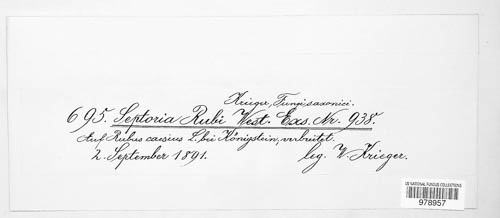 Krieger, Fungi saxonici.
695. Septoria Rubi West. Exs. Nr. 938.
Auf Rubus caesius L. bei Königstein, verbreitet.
2. September 1891. leg. W. Krieger.
US NATIONAL FUNGUS COLLECTIONS
978957